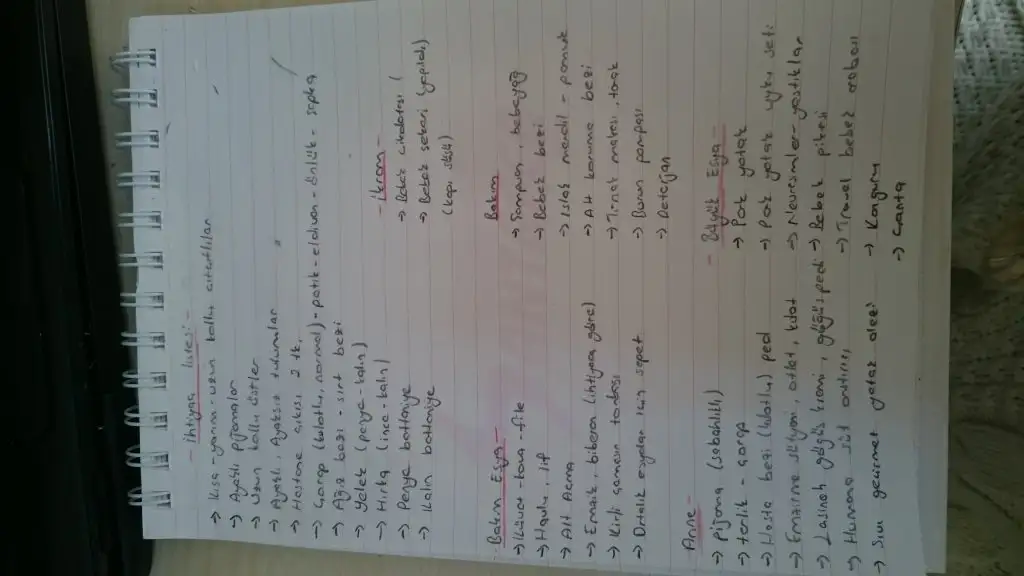 - ihtiyaç listesi -
→ Kısa - yarım - uzun kollu çıtçıtlılar
→ Ayaklı pijamalar
→ Uzun kollu üstler
→ Ayaklı, Ayaksız tulumlar
→ Hastane çıkışı 2 tk.
→ Çorap (külotlu, normal) - patik - eldiven - önlük - şapka
→ Ağız bezi - sırt bezi
→ Yelek (penye - kalın)
→ Hırka (ince - kalın)
→ Penye battaniye
→ Kalın battaniye
- ikram -
→ Bebek çikolatası
→ Bebek şekeri (yapıldı)
(kapı süsü)
- Bakım Eşya -
→ Küvet - kova - file
→ Havlu, lif
→ Alt Açma
→ Emzik, biberon (ihtiyaca göre)
→ Kirli çamaşır torbası
→ Ortalık eşyalar için sepet
Bakım
→ Şampuan, bebeyağ
→ Bebek bezi
→ Islak mendil - pamuk
→ Alt koruma bezi
→ Tırnak makası, tarak
→ Burun pompası
→ Deterjan
Anne -
→ Pijama (sabahlıklı)
→ terlik - çorap
→ Hasta bezi (külotlu) ped
→ Emzirme sütyeni, atlet, külot
→ Lasinoh göğüs kremi, göğüs pedi
→ Humana süt arttırıcı,
→ Sıvı geçirmez yatak alezi
- Büyük Eşya -
→ Park yatak
→ Park yatak uyku seti
→ Nevresimler - yastıklar
→ Bebek pikesi
→ Travel bebek arabası
→ Kanguru
→ Çanta